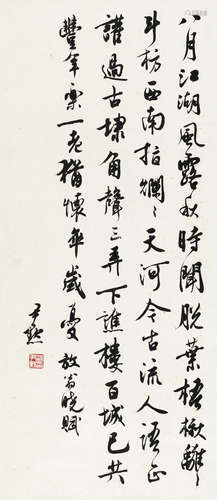 八月江湖風露秋時聞脫葉梧楸離〻
斗杓西南指爛〻天河今古流人語正
譁過古埭角聲三弄下譙樓百城已共
豐年樂一老猶懷卒歲憂 放翁曉賦
尹默